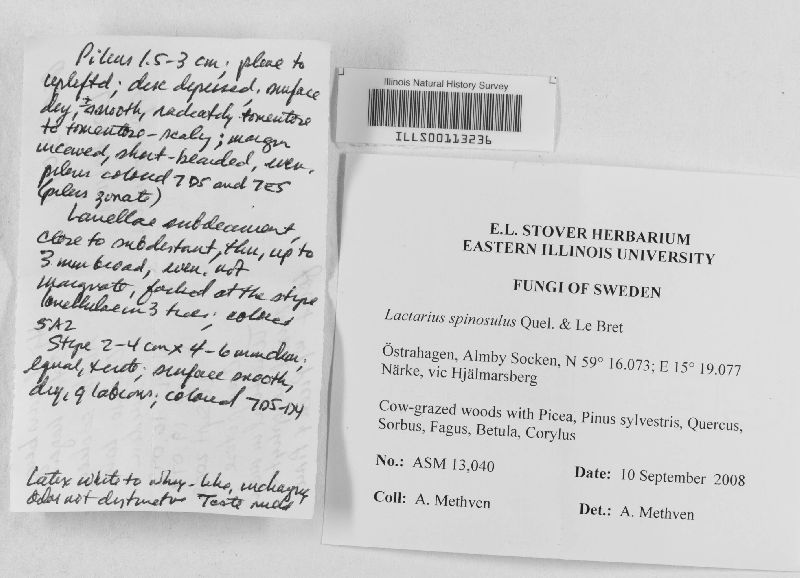 Pileus 1.5-3 cm; plane to
uplifted; disc depressed, surface
dry, ± smooth, radiately tomentose
to tomentose-scaly; margin
incurved, short-bearded, even.
pileus colored 7D5 and 7E5
(pileus zonate)
Lamellae subdecurrent,
close to subdistant, thin, up to
3 mm broad, even, not
marginate, forked at the stipe
lamellulae in 3 tiers; colored
5A2
Stipe 2-4 cm x 4-6 mm diam;
equal, terete; surface smooth,
dry, glabrous; colored 7D5-7D4
Latex white to whey-like, unchanging
Odor not distinctive Taste mild
Illinois Natural History Survey
ILLS00113236
E.L. STOVER HERBARIUM
EASTERN ILLINOIS UNIVERSITY
FUNGI OF SWEDEN
Lactarius spinosulus Quel. & Le Bret
Östrahagen, Almby Socken, N 59° 16.073; E 15° 19.077
Närke, vic Hjälmarsberg
Cow-grazed woods with Picea, Pinus sylvestris, Quercus,
Sorbus, Fagus, Betula, Corylus
No.: ASM 13,040 Date: 10 September 2008
Coll: A. Methven Det.: A. Methven